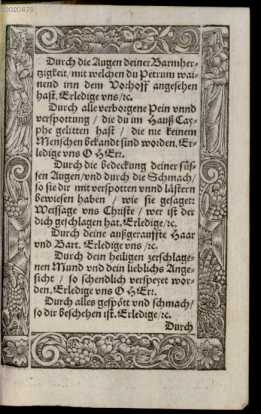 0020479
Durch die Augen deiner Barmher-
tzigkeit/ mit welchen du Petrum wai-
nend inn dem Vorhoff angesehen
hast. Erledige vns/ꝛc.
Durch alle verborgene Pein vnnd
verspottung / die du im Hauß Cay-
phe gelitten hast / die nie keinem
Menschen bekandt sind worden. Er-
ledige vns O HErr.
Durch die bedeckung deiner süs-
sen Augen/vnd durch die Schmach/
so sie dir mit verspotten vnnd lästern
bewiesen haben / wie sie gesaget:
Weissage vns Christe / wer ist der
dich geschlagen hat. Erledige/ꝛc.
Durch deine außgerauffte Haar
vnd Bart. Erledige vns /ꝛc.
Durch dein heiligen zerschlage-
nen Mund vnd dein lieblichs Ange-
sicht / so schendlich verspeyet wor-
den. Erledige vns O HErr.
Durch alles gespött vnd schmach/
so dir beschehen ist. Erledige/ꝛc.
Durch